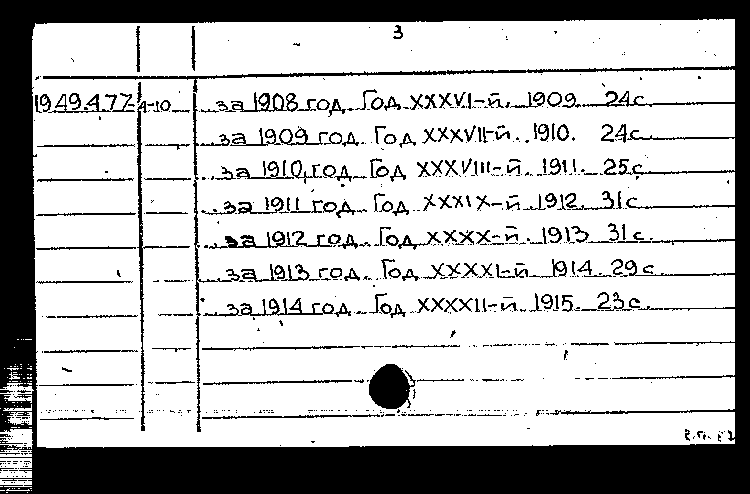 3
1949.4.77-4-10 за 1908 год. Год XXXVI-й. 1909 24с.
за 1909 год. Год XXXVII-й. 1910. 24с.
за 1910 год. Год XXXVIII-й. 1911. 25с.
за 1911 год. Год XXXIX-й. 1912. 31с.
за 1912 год. Год XXXX-й. 1913 31с.
за 1913 год. Год XXXXI-й 1914. 29с.
за 1914 год. Год XXXXII-й. 1915. 23с.